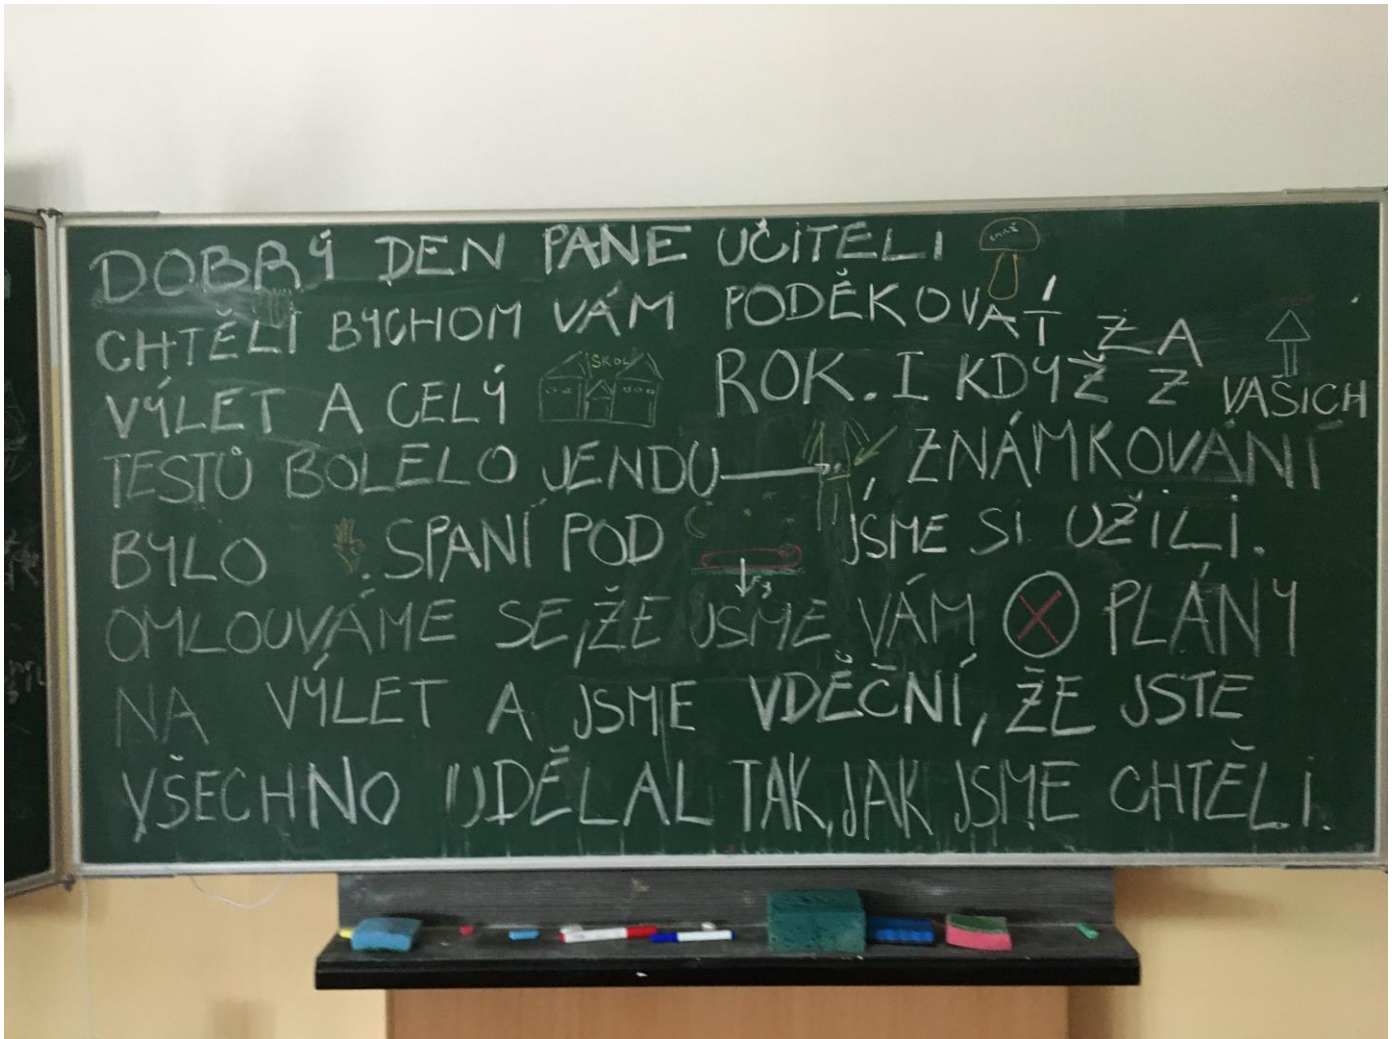 DOBRÝ DEN PANE UČITELI
CHTĚLI BYCHOM VÁM PODĚKOVAT ZA
VÝLET A CELÝ ŠKOL ROK. I KDYŽ Z VAŠICH
TESTŮ BOLELO JENDU , ZNÁMKOVÁNÍ
BYLO . SPANÍ POD JSME SI UŽILI.
OMLOUVÁME SE, ŽE JSME VÁM PLÁNY
NA VÝLET A JSME VDĚČNÍ, ŽE JSTE
VŠECHNO UDĚLAL TAK, JAK JSME CHTĚLI.